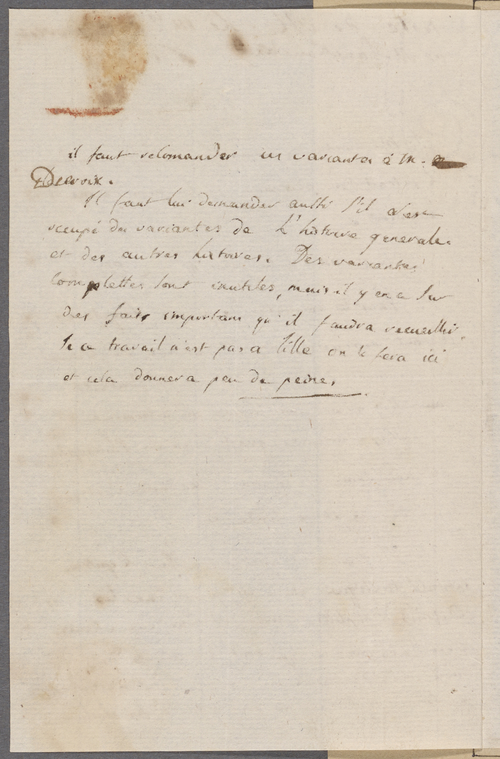 il faut redemander ces variantes à M.
Decroix.
Il faut lui demander aussi s'il s'est
occupé des variantes de l'histoire generale
et des autres histoires. Des variantes
complettes sont inutiles, mais il y en a sur
des faits importans qu'il faudra recueillir.
Si ce travail n'est pas a Lille on le fera ici
et cela donnera peu de peine.